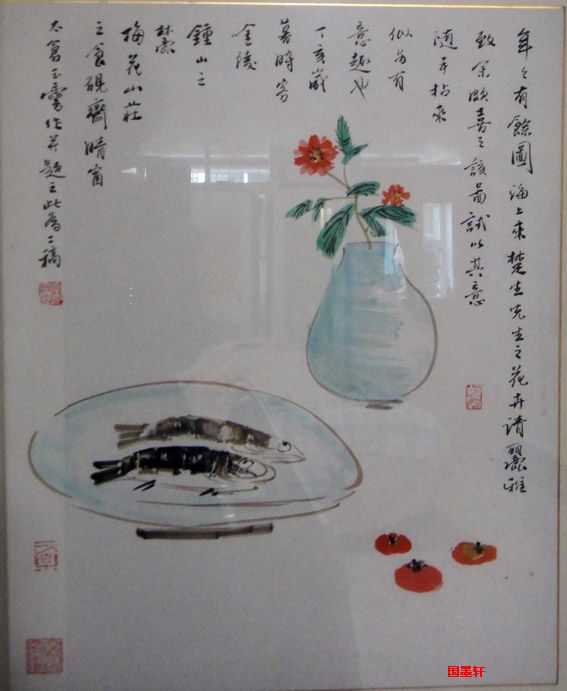 年々有餘圖海上來楚生先生之花卉清麗雅
致余頗喜之該啚試以其意
随手拈來
似另有
意趣也
丁亥嵗
暮時客
金陵
鍾山之
梅花山莊
之食硯齋晴窗
太倉作并題之此為二稿
国墨轩